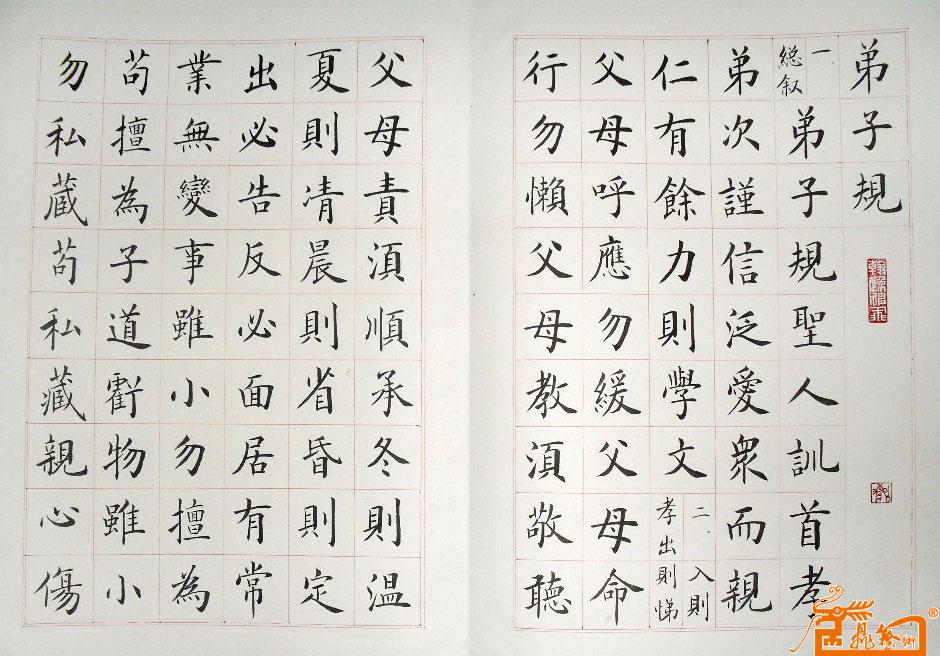 弟子規
一、総叙
弟子規聖人訓首孝
弟次謹信泛愛衆而親
仁有餘力則學文
二、入則孝出則悌
父母呼應勿緩父母命
行勿懶父母教須敬聽
父母責須順承冬則温
夏則凊晨則省昏則定
出必告反必面居有常
業無變事雖小勿擅為
苟擅為子道虧物雖小
勿私藏苟私藏親心傷